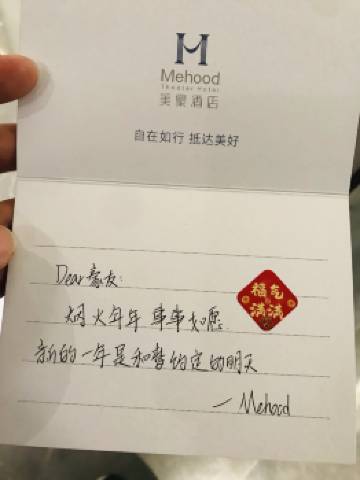 Mehood
Theater Hotel
美豪酒店
自在如行 抵达美好
Dear豪友:
福气
满满
烟火年年 事事如愿
新的一年是和誓约定的明天
—Mehood